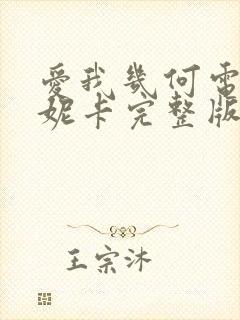 爱我幾何電
妮卡完整版
王宗沐